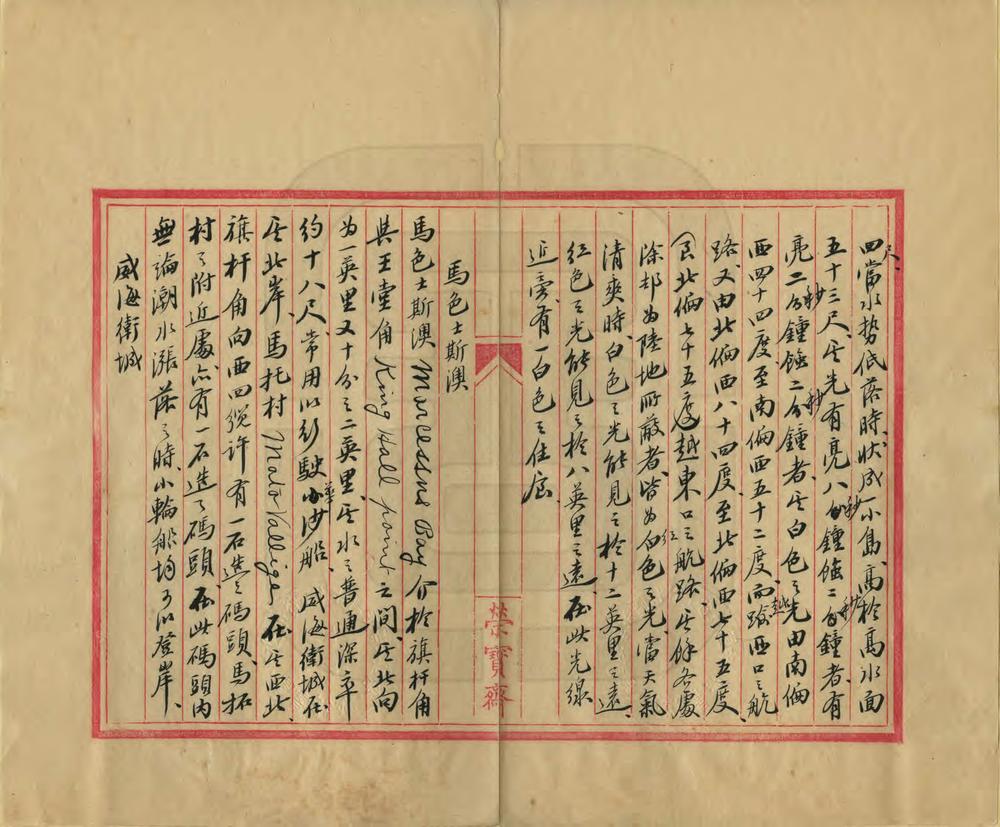 四尺當水势低落時、狀成一小島、高於高水面
五十三尺、其光有亮八秒鐘蝕二秒鐘者、有
亮二秒鐘蝕二秒鐘者、其白色之光由南偏
西四十四度至南偏西五十二度、而越西口之航
路、又由北偏西八十四度至北偏西七十五度、
北偏七十五度越東口之航路、其餘各處
除却为陸地所蔽者、皆为紅色之光、當天氣
清爽時白色之光能見之於十二英里之遠、
紅色之光能見之於八英里之遠、在此光線
近旁、有一白色之住房
馬色士斯澳
馬色士斯澳 Marcessus Bay 介於旗杆角
與王壹角 King Hall point 之間、其北向
为一英里又十分之二英里、其水之普通深率
約十八尺、常用以行駛華沙船、威海衛城在
其北岸、馬托村 Mato Valliges 在其西北、
旗杆角向西四纜許有一石造之碼頭、馬拓
村之附近處、亦有一石造之碼頭、在此碼頭内
無論潮水漲落之時、小輪船均可以登岸、
威海衛城
榮寶齋